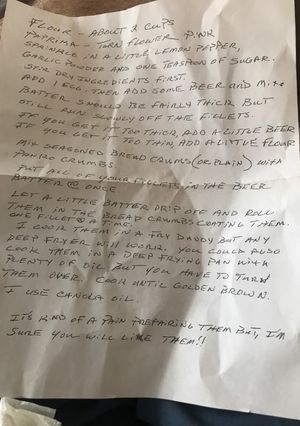 FLOUR - ABOUT 2 CUPS
PAPRIKA - TURN FLOWER PINK
SPRINKLE IN A LITTLE LEMON PEPPER,
GARLIC POWDER AND ONE TEASPOON OF SUGAR.
STIR DRY INGREDIENTS FIRST.
ADD 1 EGG. THEN ADD SOME BEER AND MIX
BATTER SHOULD BE FAIRLY THICK BUT
STILL RUN SLOWLY OFF THE FILLETS.
IF YOU GET IT TOO THICK, ADD A LITTLE BEER
IF YOU GET IT TOO THIN, ADD A LITTLE FLOUR
MIX SEASONED BREAD CRUMBS (OR PLAIN) WITH
PANKO CRUMBS.
PUT ALL OF YOUR FILLETS IN THE BEER
BATTER @ ONCE.
LET A LITTLE BATTER DRIP OFF AND ROLL
THEM IN THE BREAD CRUMBS COATING THEM.
ONE FILLET @ A TIME.
I COOK THEM IN A FRY DADDY BUT ANY
DEEP FRYER WILL WORK. YOU COULD ALSO
COOK THEM IN A DEEP FRYING PAN WITH
PLENTY OF OIL BUT YOU HAVE TO TURN
THEM OVER. COOK UNTIL GOLDEN BROWN.
I USE CANOLA OIL.
IT'S KIND OF A PAIN PREPARING THEM BUT, I'M
SURE YOU WILL LIKE THEM!!